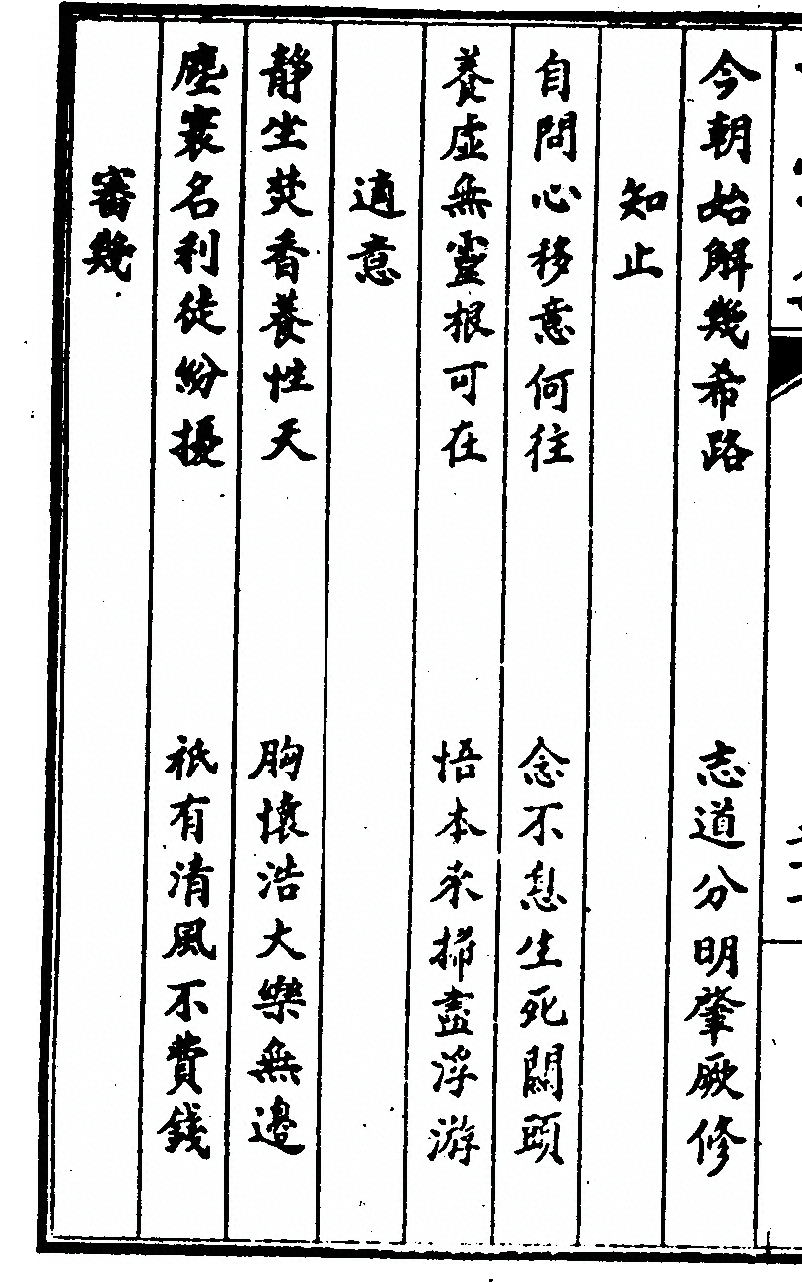 今朝始解幾希路 志道分明肇厥修
知止
自問心移意何往 念不息生死關頭
養虛無靈根可在 悟本來掃盡浮游
適意
靜坐焚香養性天 胸懷浩大樂無邊
塵寰名利徒紛擾 祇有清風不費錢
審幾